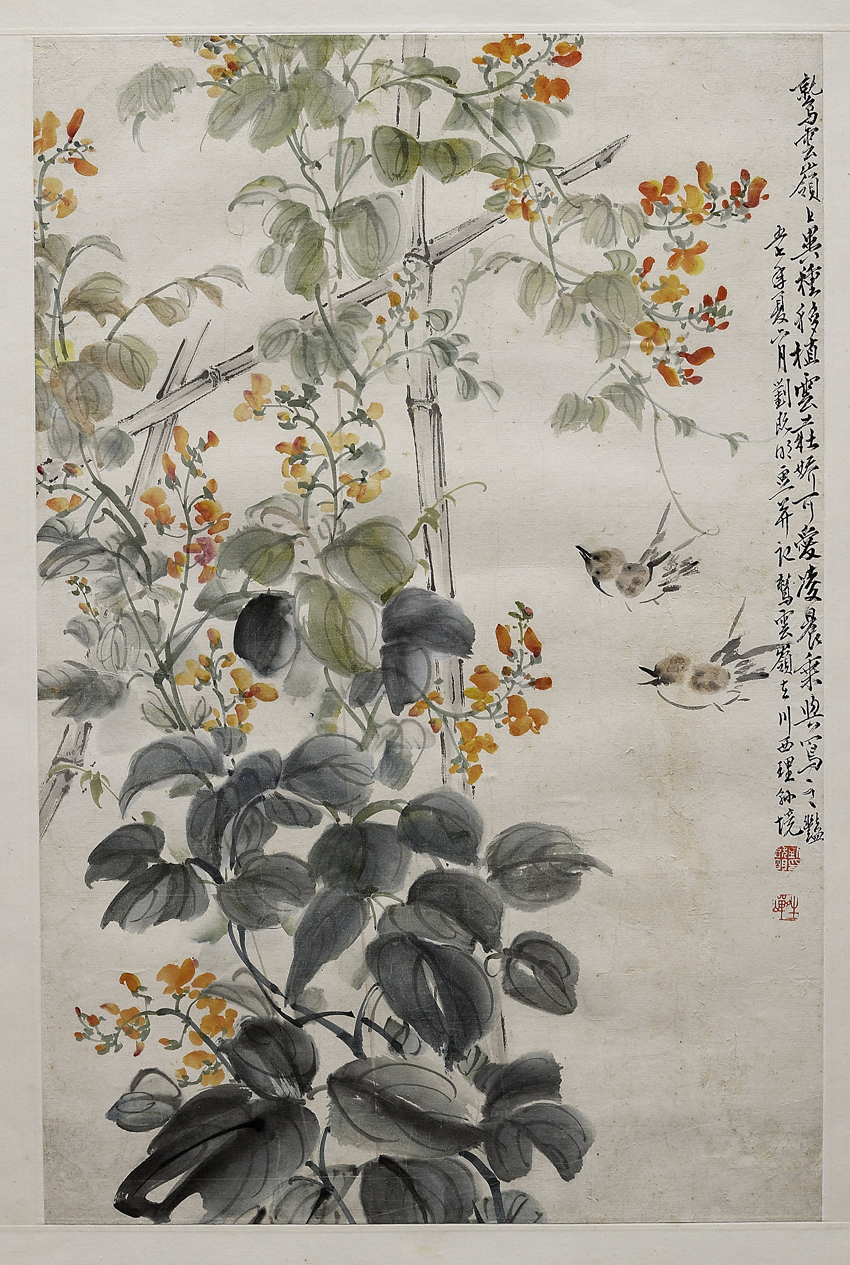 鷲雲嶺上異種移植雲莊娇可愛凌晨乘興寫之豔
五七年夏六月劉既明畫并記鷲雲嶺在川西理外境